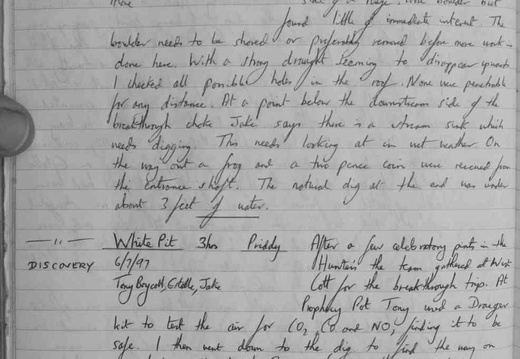 found little of immediate interest. The
boulder needs to be shored or preferably removed before more work is
done here. With a strong draught seeming to disappear upwards
I checked all possible holes in the roof. None were penetrable
for any distance. At a point below the downstream side of the
breakthrough choke Jake says there is a stream sink which
needs digging. This needs looking at in wet weather. On
the way out a frog and a two pence coin were rescued from
the entrance shaft. The natural dig at the end was under
about 3 feet of water.
— " — White Pit 3hrs Priddy After a few celebratory pints in the
DISCOVERY 6/7/97 Hunters the team gathered at West
Tony Boycott, Estelle, Jake Cott for the breakthrough trips. At
Prophecy Pot Tony used a Draeger
kit to test the air for CO2, CO and NO, finding it to be
safe. I then went down to the dig to find the way on